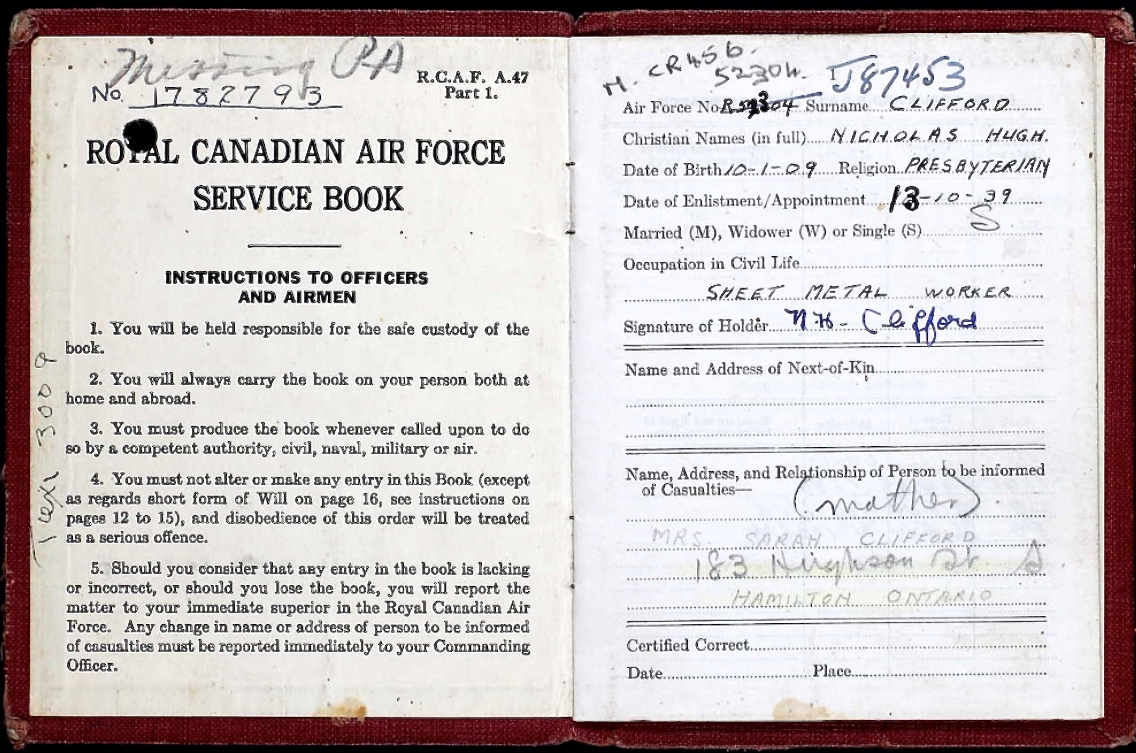 Missing PA
R.C.A.F. A.47
Part 1.
No. 1782793
ROYAL CANADIAN AIR FORCE
SERVICE BOOK
INSTRUCTIONS TO OFFICERS
AND AIRMEN
1. You will be held responsible for the safe custody of the
book.
2. You will always carry the book on your person both at
home and abroad.
3. You must produce the book whenever called upon to do
so by a competent authority, civil, naval, military or air.
4. You must not alter or make any entry in this Book (except
as regards short form of Will on page 16, see instructions on
pages 12 to 15), and disobedience of this order will be treated
as a serious offence.
5. Should you consider that any entry in the book is lacking
or incorrect, or should you lose the book, you will report the
matter to your immediate superior in the Royal Canadian Air
Force. Any change in name or address of person to be informed
of casualties must be reported immediately to your Commanding
Officer.
300
CR456.
52304. J87453
Air Force No. Surname CLIFFORD
Christian Names (in full) NICHOLAS HUGH.
Date of Birth 10-1-09 Religion PRESBYTERIAN
Date of Enlistment/Appointment 13-10-39
Married (M), Widower (W) or Single (S) S
Occupation in Civil Life
SHEET METAL WORKER
Signature of Holder N.H. Clifford
Name and Address of Next-of-Kin
Name, Address, and Relationship of Person to be informed
of Casualties—
(mother).
MRS. SARAH CLIFFORD
183 Hughson St. S
HAMILTON ONTARIO
Certified Correct
Date Place